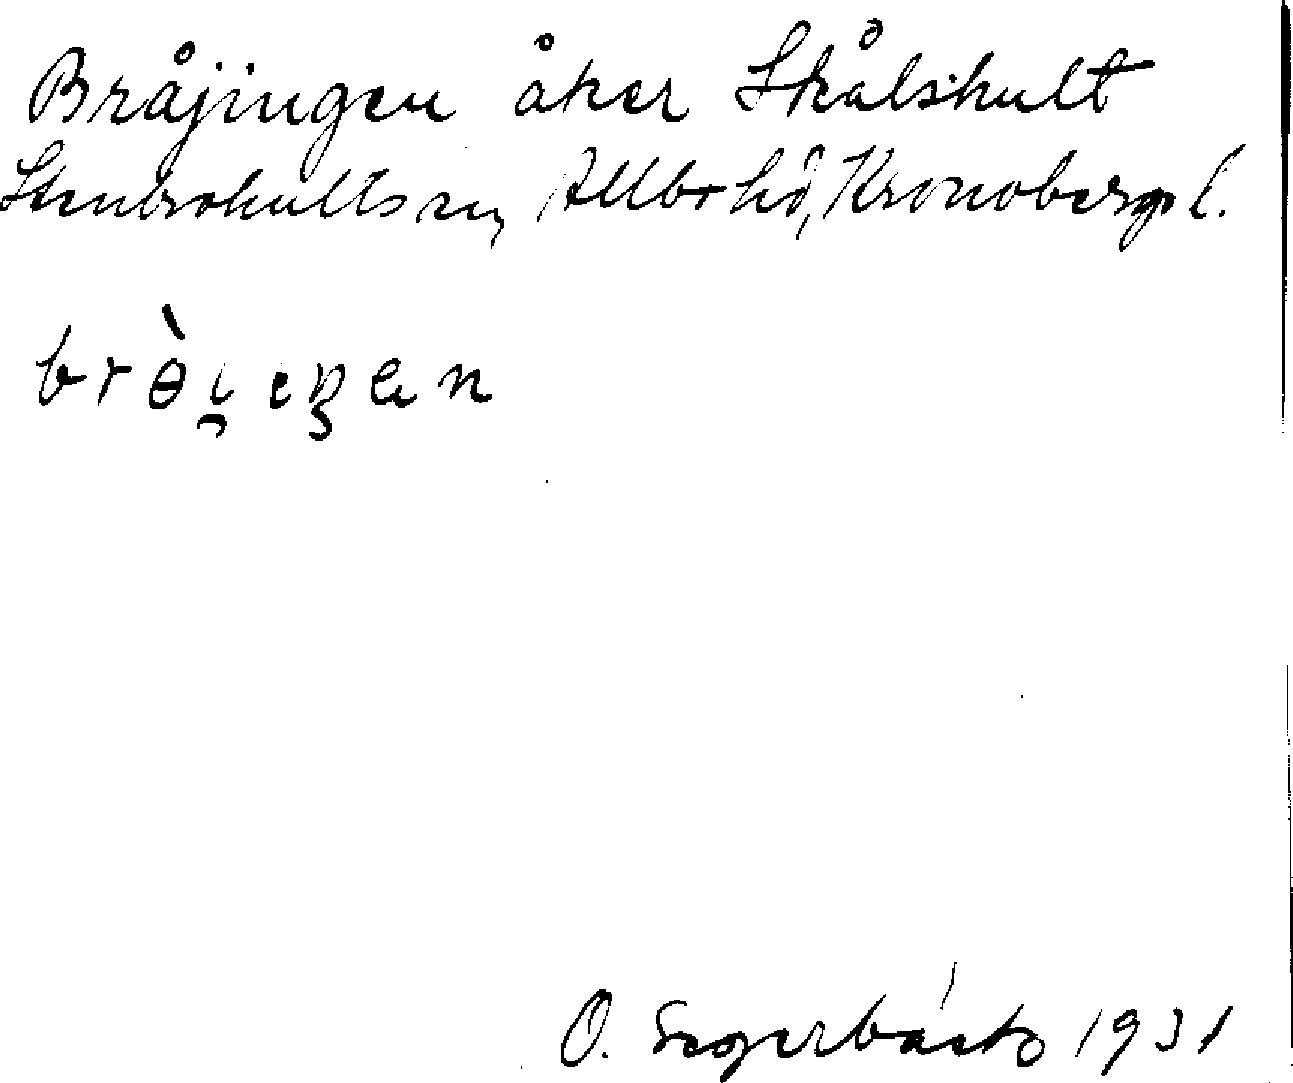 Bråjingen åker Skålshult
Stenbrohults sn, Allbo hd, Kronobergs l.
brò̱i̯eŋen
O. Segerbäck 1931